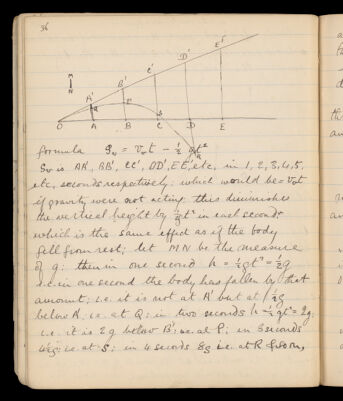 36
E'
D'
C'
B'
A'
M
N
Q P S
O A B C D E
R
formula Sv = Vv t − ½ gt²
Sv is AA', BB', CC', DD', EE', etc, in 1, 2, 3, 4, 5,
etc, seconds respectively; which would be = Vv t
if gravity were not acting; this diminishes
the vertical height by ½gt² in each second
which is the same effect as if the body
fell from rest; let MN be the measure
of g; then in one second h = ½gt² = ½g
i.e. in one second the body has fallen by that
amount; i.e. it is not at A' but at ½g
below A'; i.e. at Q; in two seconds h = ½gt² = 2g
i.e. it is 2g below B'; i.e. at P; in 3 seconds
4½g; i.e. at S; in 4 seconds 8g i.e. at R & so on,